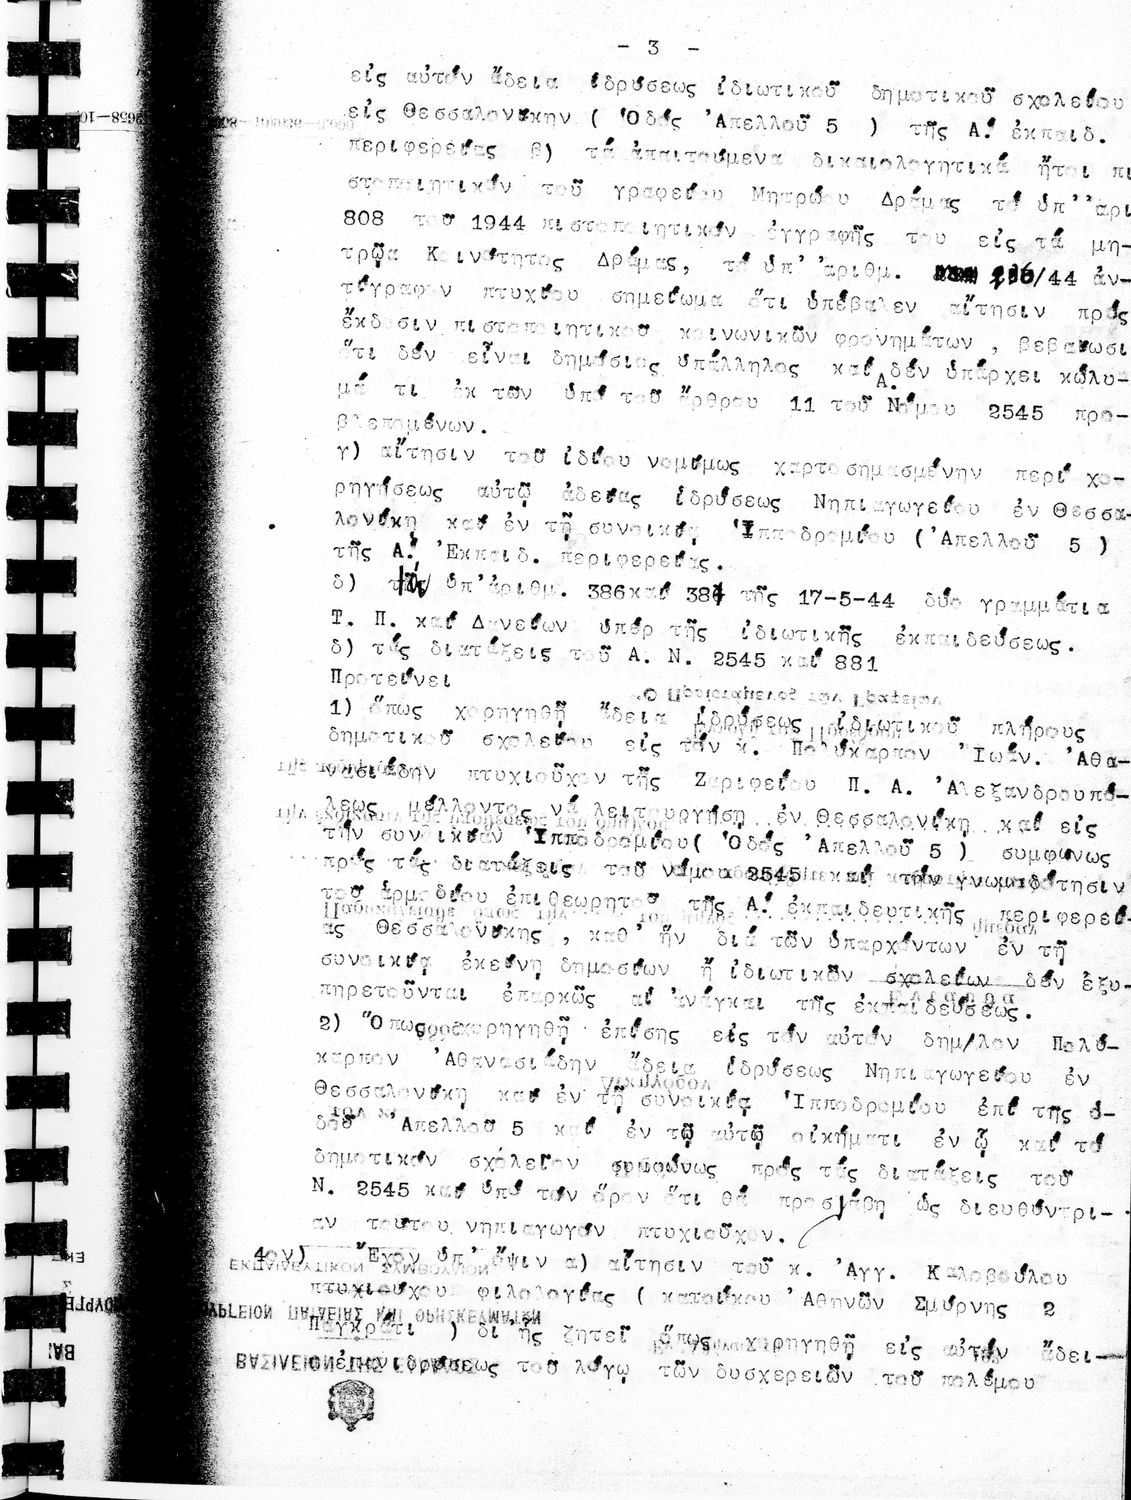 - 3 -
εἰς αὐτόν ἄδεια ἱδρύσεως ἰδιωτικοῦ δημοτικοῦ σχολείου
εἰς Θεσσαλονίκην ( Ὁδός Ἀπελλοῦ 5 ) τῆς Α! ἐκπαιδ.
περιφερείας β) τά ἀπαιτούμενα δικαιολογητικά ἤτοι πι
στοποιητικόν τοῦ γραφείου Μητρώου Δράμας τό ὑπ' ἀρι
808 τοῦ 1944 πιστοποιητικόν ἐγγραφῆς του εἰς τά μη-
τρῷα Κοινότητος Δράμας, τό ὑπ' ἀριθμ. /44 ἀν-
τίγραφον πτυχίου σημείωμα ὅτι ὑπέβαλεν αἴτησιν πρός
ἔκδοσιν πιστοποιητικοῦ κοινωνικῶν φρονημάτων , βεβαίωσι
ὅτι δέν εἶναι δημόσιος ὑπάλληλος καί δέν ὑπάρχει κώλυ-
μά τι ἐκ τῶν ὑπό τοῦ ἄρθρου 11 τοῦ Α. Νόμου 2545 προ-
βλεπομένων.
γ) αἴτησιν τοῦ ἰδίου νομίμως χαρτοσημασμένην περί χο-
ρηγήσεως αὐτῷ ἀδείας ἱδρύσεως Νηπιαγωγείου ἐν Θεσσα-
λονίκῃ καί ἐν τῇ συνοικίᾳ Ἱπποδρομίου (Ἀπελλοῦ 5 )
τῆς Α! Ἐκπαιδ. περιφερείας.
δ) τά ὑπ' ἀριθμ. 386 καί 387 τῆς 17-5-44 δύο γραμμάτια
Τ. Π. καί Δανείων ὑπέρ τῆς ἰδιωτικῆς ἐκπαιδεύσεως.
δ) τάς διατάξεις τοῦ Α. Ν. 2545 καί 881
Προτείνει
1) ὅπως χορηγηθῇ ἄδεια ἱδρύσεως ἰδιωτικοῦ πλήρους
δημοτικοῦ σχολείου εἰς τόν κ. Πολύκαρπον Ἰωάν. Ἀθα-
νασιάδην πτυχιοῦχον τῆς Ζαριφείου Π. Α. Ἀλεξανδρουπό-
λεως μέλλοντος νά λειτουργήσῃ ἐν Θεσσαλονίκῃ καί εἰς
τήν συνοικίαν Ἱπποδρομίου( Ὁδός Ἀπελλοῦ 5 ) συμφώνως
πρός τάς διατάξεις τοῦ νόμου 2545 καί τήν γνωμοδότησιν
τοῦ ἁρμοδίου ἐπιθεωρητοῦ τῆς Α! ἐκπαιδευτικῆς περιφερεί-
ας Θεσσαλονίκης , καθ' ἥν διά τῶν ὑπαρχόντων ἐν τῇ
συνοικίᾳ ἐκείνῃ δημοσίων ἤ ἰδιωτικῶν σχολείων δέν ἐξυ-
πηρετοῦνται ἐπαρκῶς αἱ ἀνάγκαι τῆς ἐκπαιδεύσεως.
2) Ὅπως χορηγηθῇ ἐπίσης εἰς τόν αὐτόν δημ/λον Πολύ-
καρπον Ἀθανασιάδην ἄδεια ἱδρύσεως Νηπιαγωγείου ἐν
Θεσσαλονίκῃ καί ἐν τῇ συνοικίᾳ Ἱπποδρομίου ἐπί τῆς ὁ-
δοῦ Ἀπελλοῦ 5 καί ἐν τῷ αὐτῷ οἰκήματι ἐν ᾧ καί τό
δημοτικόν σχολεῖον συμφώνως πρός τάς διατάξεις τοῦ
Ν. 2545 καί ὑπό τόν ὅρον ὅτι θά προσλάβῃ ὡς διευθύντρι-
αν τούτου νηπιαγωγόν πτυχιοῦχον.
4ον) Ἔχον ὑπ' ὄψιν α) αἴτησιν τοῦ κ. Ἀγγ. Καλοβούλου
πτυχιούχου φιλολογίας ( κατοίκου Ἀθηνῶν Σμύρνης 2
Παγκράτι ) δι' ἧς ζητεῖ ὅπως χορηγηθῇ εἰς αὐτόν ἄδει-
α ἐπανιδρύσεως τοῦ λόγῳ τῶν δυσχερειῶν τοῦ πολέμου